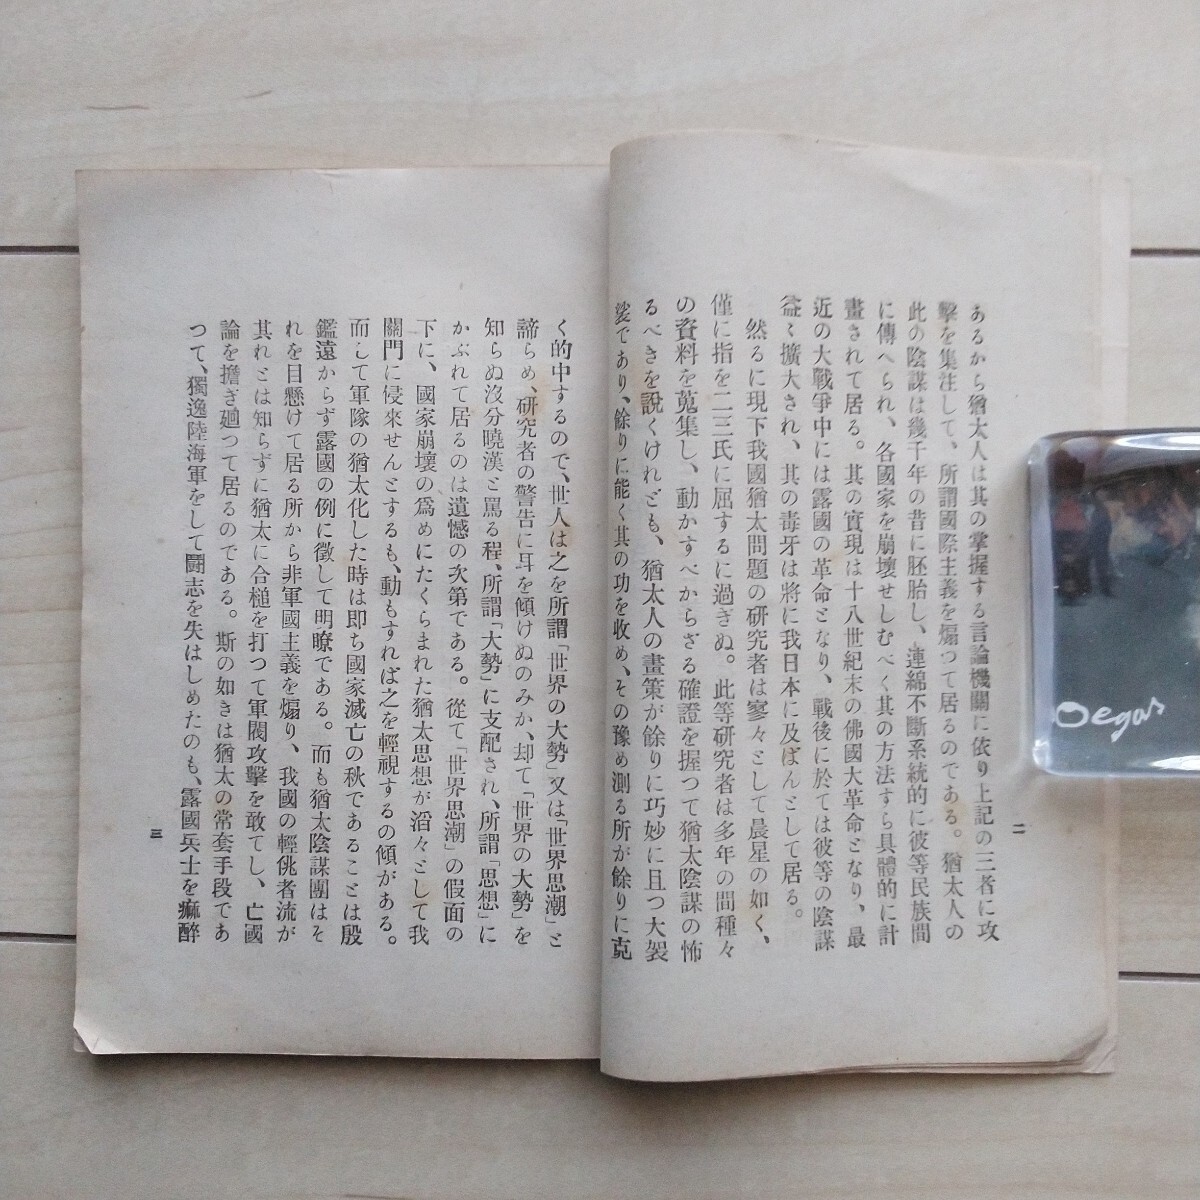 あるから猶太人は其の掌握する言論機關に依り上記の三者に攻
擊を集注して、所謂國際主義を煽つて居るのである。猶太人の
此の陰謀は幾千年の昔に胚胎し、連綿不斷系統的に彼等民族間
に傳へられ、各國家を崩壞せしむべく其の方法すら具體的に計
畫されて居る。其の實現は十八世紀末の佛國大革命となり、最
近の大戰爭中には露國の革命となり、戰後に於ては彼等の陰謀
益々擴大され、其の毒牙は將に我日本に及ばんとして居る。
然るに現下我國猶太問題の研究者は寥々として晨星の如く、
僅に指を二三氏に屈するに過ぎぬ。此等研究者は多年の間種々
の資料を蒐集し、動かすべからざる確證を握つて猶太陰謀の怖
るべきを說くけれども、猶太人の畫策が餘りに巧妙に且つ大袈
裟であり、餘りに能く其の功を收め、その豫め測る所が餘りに克
二
く的中するので、世人は之を所謂「世界の大勢」又は「世界思潮」と
諦らめ、研究者の警告に耳を傾けぬのみか、却て「世界の大勢」を
知らぬ沒分曉漢と罵る程、所謂「大勢」に支配され、所謂「思想」に
かぶれて居るのは遺憾の次第である。從て「世界思潮」の假面の
下に、國家崩壞の爲めにたくらまれた猶太思想が滔々として我
關門に侵來せんとするも、動もすれば之を輕視するの傾がある。
而して軍隊の猶太化した時は即ち國家滅亡の秋であることは殷
鑑遠からず露國の例に徵して明瞭である。而も猶太陰謀團はそ
れを目懸けて居る所から非軍國主義を煽り、我國の輕佻者流が
其れとは知らずに猶太に合槌を打つて軍閥攻擊を敢てし、亡國
論を擔ぎ廻つて居るのである。斯の如きは猶太の常套手段であ
つて、獨逸陸海軍をして鬪志を失はしめたのも、露國兵士を痲醉
三
Degas